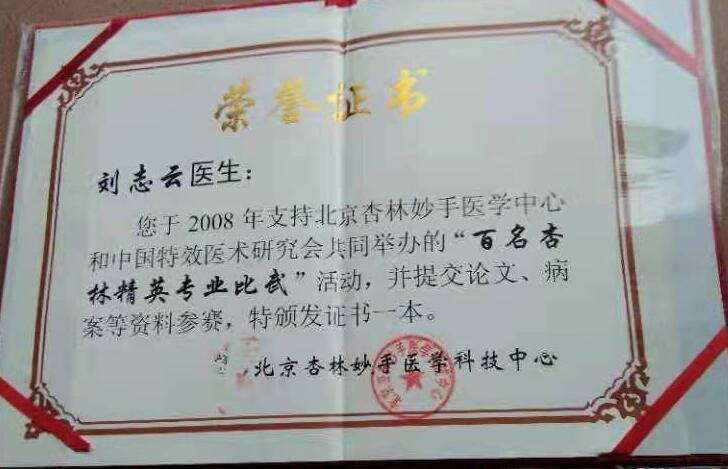 荣誉证书
刘志云医生：
您于2008年支持北京杏林妙手医学中心
和中国特效医术研究会共同举办的“百名杏
林精英专业比武”活动，并提交论文、病
案等资料参赛，特颁发证书一本。
北京杏林妙手医学科技中心